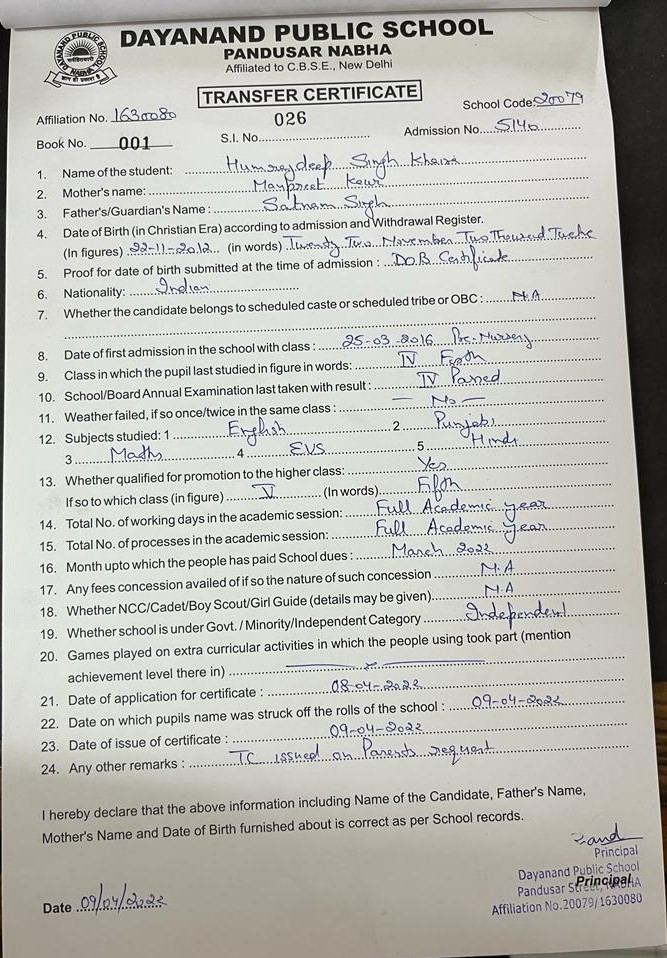 DAYANAND PUBLIC SCHOOL
PANDUSAR NABHA
Affiliated to C.B.S.E., New Delhi
TRANSFER CERTIFICATE
Affiliation No. 1630080 School Code: 20079
Book No. 001 S.I. No. 026 Admission No. 5140
1. Name of the student: Humrajdeep Singh Khaira
2. Mother's name: Manpreet Kaur
3. Father's/Guardian's Name: Satnam Singh
4. Date of Birth (in Christian Era) according to admission and Withdrawal Register.
(In figures) 22-11-2012 (in words) Twenty Two November Two Thousand Twelve
5. Proof for date of birth submitted at the time of admission: D.O.B Certificate
6. Nationality: Indian
7. Whether the candidate belongs to scheduled caste or scheduled tribe or OBC: N.A
8. Date of first admission in the school with class: 25-03-2016 Pre-Nursery
9. Class in which the pupil last studied in figure in words: IV
10. School/Board Annual Examination last taken with result: IV Passed
11. Weather failed, if so once/twice in the same class: — No —
12. Subjects studied: 1 English 2 Punjabi
3 Maths 4 EVS 5 Hindi
13. Whether qualified for promotion to the higher class: Yes
If so to which class (in figure) V (In words) Fifth
14. Total No. of working days in the academic session: Full Academic year
15. Total No. of processes in the academic session: Full Academic year
16. Month upto which the people has paid School dues: March 2022
17. Any fees concession availed of if so the nature of such concession N.A
18. Whether NCC/Cadet/Boy Scout/Girl Guide (details may be given) N.A
19. Whether school is under Govt. / Minority/Independent Category Independent
20. Games played on extra curricular activities in which the people using took part (mention
achievement level there in)
21. Date of application for certificate: 08-04-2022
22. Date on which pupils name was struck off the rolls of the school: 09-04-2022
23. Date of issue of certificate: 09-04-2022
24. Any other remarks: TC issued on Parents request
I hereby declare that the above information including Name of the Candidate, Father's Name,
Mother's Name and Date of Birth furnished about is correct as per School records.
Principal
Dayanand Public School
Principal
Pandusar Street, NABHA
Affiliation No.20079/1630080
Date 09/04/2022